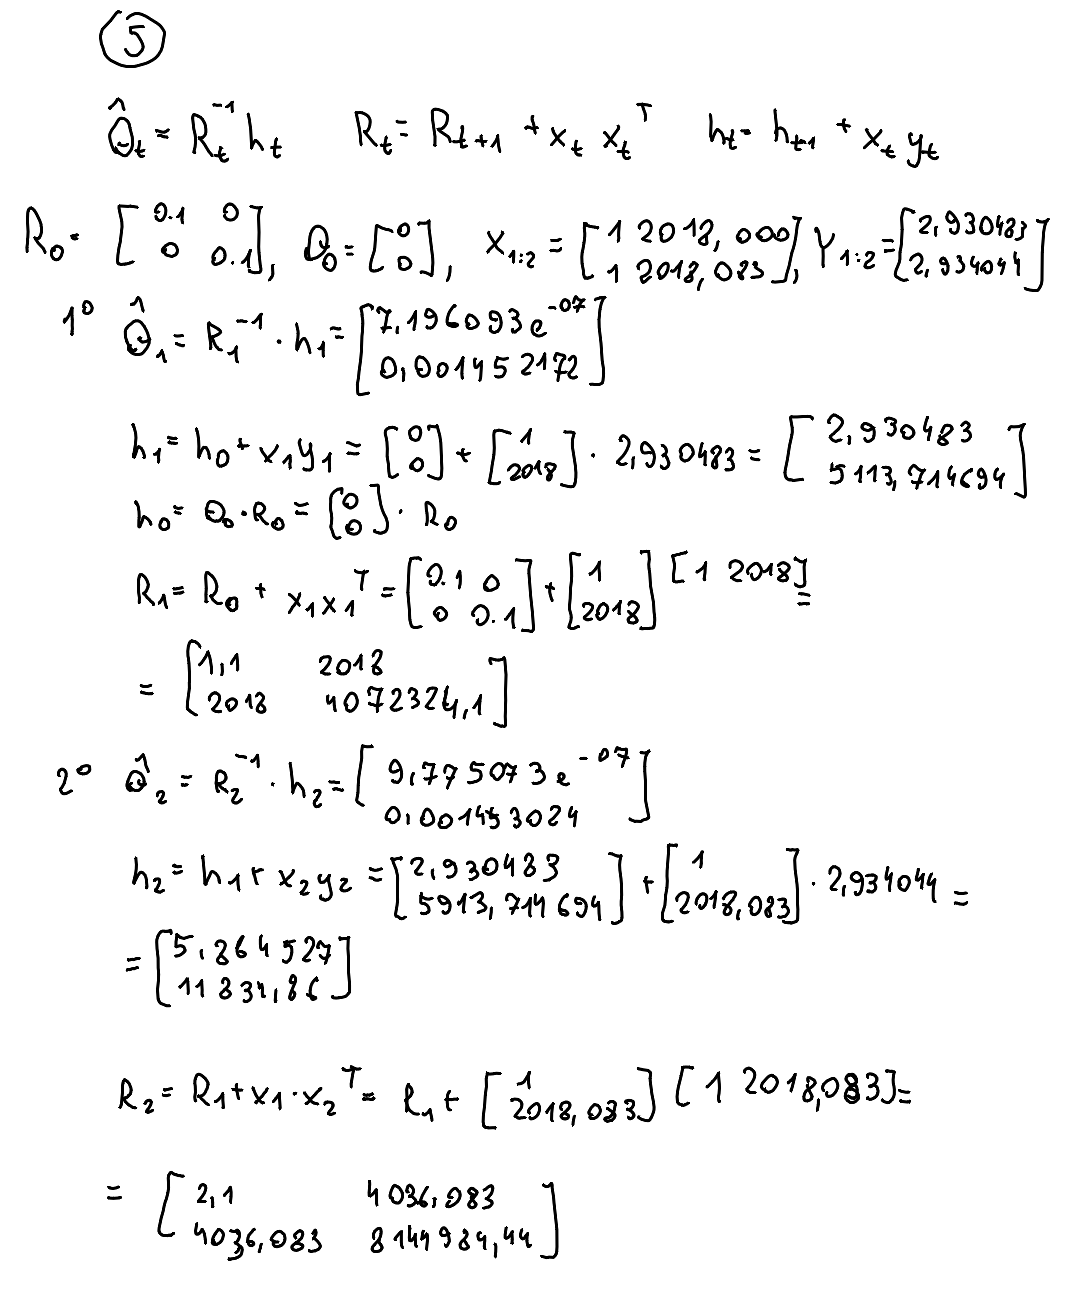 5
θ̂_t = R_t^{-1} h_t    R_t = R_{t+1} + x_t x_t^T    h_t = h_{t+1} + x_t y_t
R_0 = [0.1 0; 0 0.1], θ_0 = [0; 0], X_{1:2} = [1 2018,000; 1 2018,083], Y_{1:2} = [2,930483; 2,934044]
1° θ̂_1 = R_1^{-1} · h_1 = [7,196093e^{-07}; 0,001452172]
h_1 = h_0 + x_1 y_1 = [0; 0] + [1; 2018] · 2,930483 = [2,930483; 5113,714694]
h_0 = θ_0 · R_0 = [0; 0] · R_0
R_1 = R_0 + x_1 x_1^T = [0.1 0; 0 0.1] + [1; 2018] [1 2018] =
= [1,1 2018; 2018 4072324,1]
2° θ̂_2 = R_2^{-1} · h_2 = [9,775073e^{-07}; 0,001453024]
h_2 = h_1 + x_2 y_2 = [2,930483; 5913,714694] + [1; 2018,083] · 2,934044 =
= [5,864527; 11834,86]
R_2 = R_1 + x_1 · x_2^T = R_1 + [1; 2018,083] [1 2018,083] =
= [2,1 4036,083; 4036,083 8144984,44]